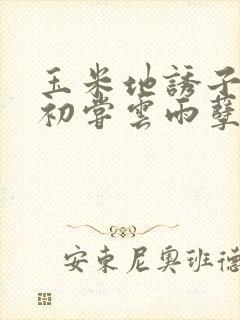 玉米地誘子
初嘗雲雨孽
安東尼奧班德